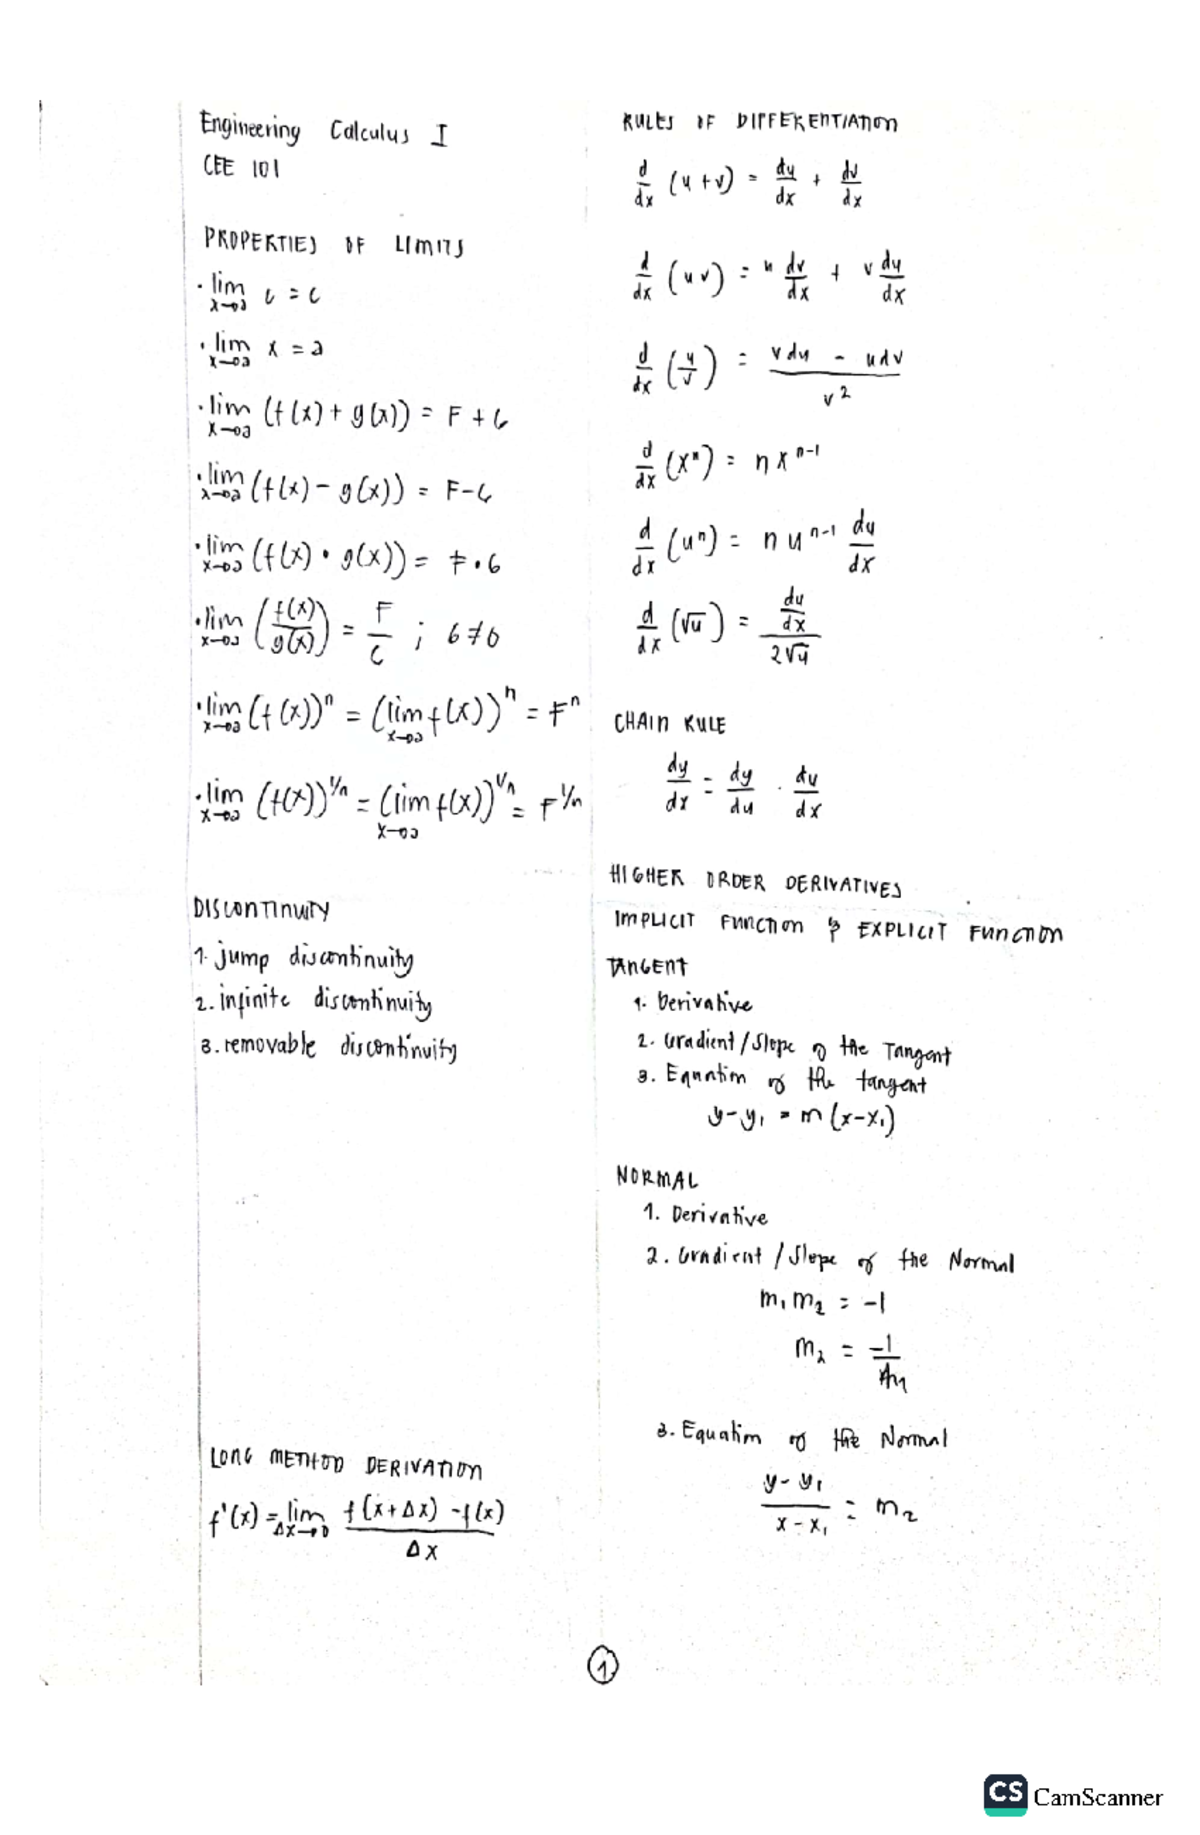 Engineering Calculus I
CEE 101
PROPERTIES OF LIMITS
· lim x→a c = c
· lim x→a x = a
· lim x→a (f(x) + g(x)) = F + G
· lim x→a (f(x) − g(x)) = F − G
· lim x→a (f(x) • g(x)) = F • G
· lim x→a (f(x)/g(x)) = F/G ; G ≠ 0
· lim x→a (f(x))^n = (lim x→a f(x))^n = F^n
· lim x→a (f(x))^1/n = (lim x→a f(x))^1/n = F^1/n
DISCONTINUITY
1. jump discontinuity
2. infinite discontinuity
3. removable discontinuity
LONG METHOD DERIVATION
f'(x) = lim Δx→0 (f(x+Δx) − f(x))/Δx
RULES OF DIFFERENTIATION
d/dx (u + v) = du/dx + dv/dx
d/dx (uv) = u dv/dx + v du/dx
d/dx (u/v) = (vdu − udv)/v²
d/dx (x^n) = nx^n-1
d/dx (u^n) = nu^n-1 du/dx
d/dx (√u) = (du/dx)/(2√u)
CHAIN RULE
dy/dx = dy/du · du/dx
HIGHER ORDER DERIVATIVES
IMPLICIT FUNCTION & EXPLICIT FUNCTION
TANGENT
1. Derivative
2. Gradient/Slope of the Tangent
3. Equation of the tangent
y−y₁ = m(x−x₁)
NORMAL
1. Derivative
2. Gradient/Slope of the Normal
m₁m₂ = −1
m₂ = −1/m₁
3. Equation of the Normal
(y−y₁)/(x−x₁) = m₂
1
CS CamScanner